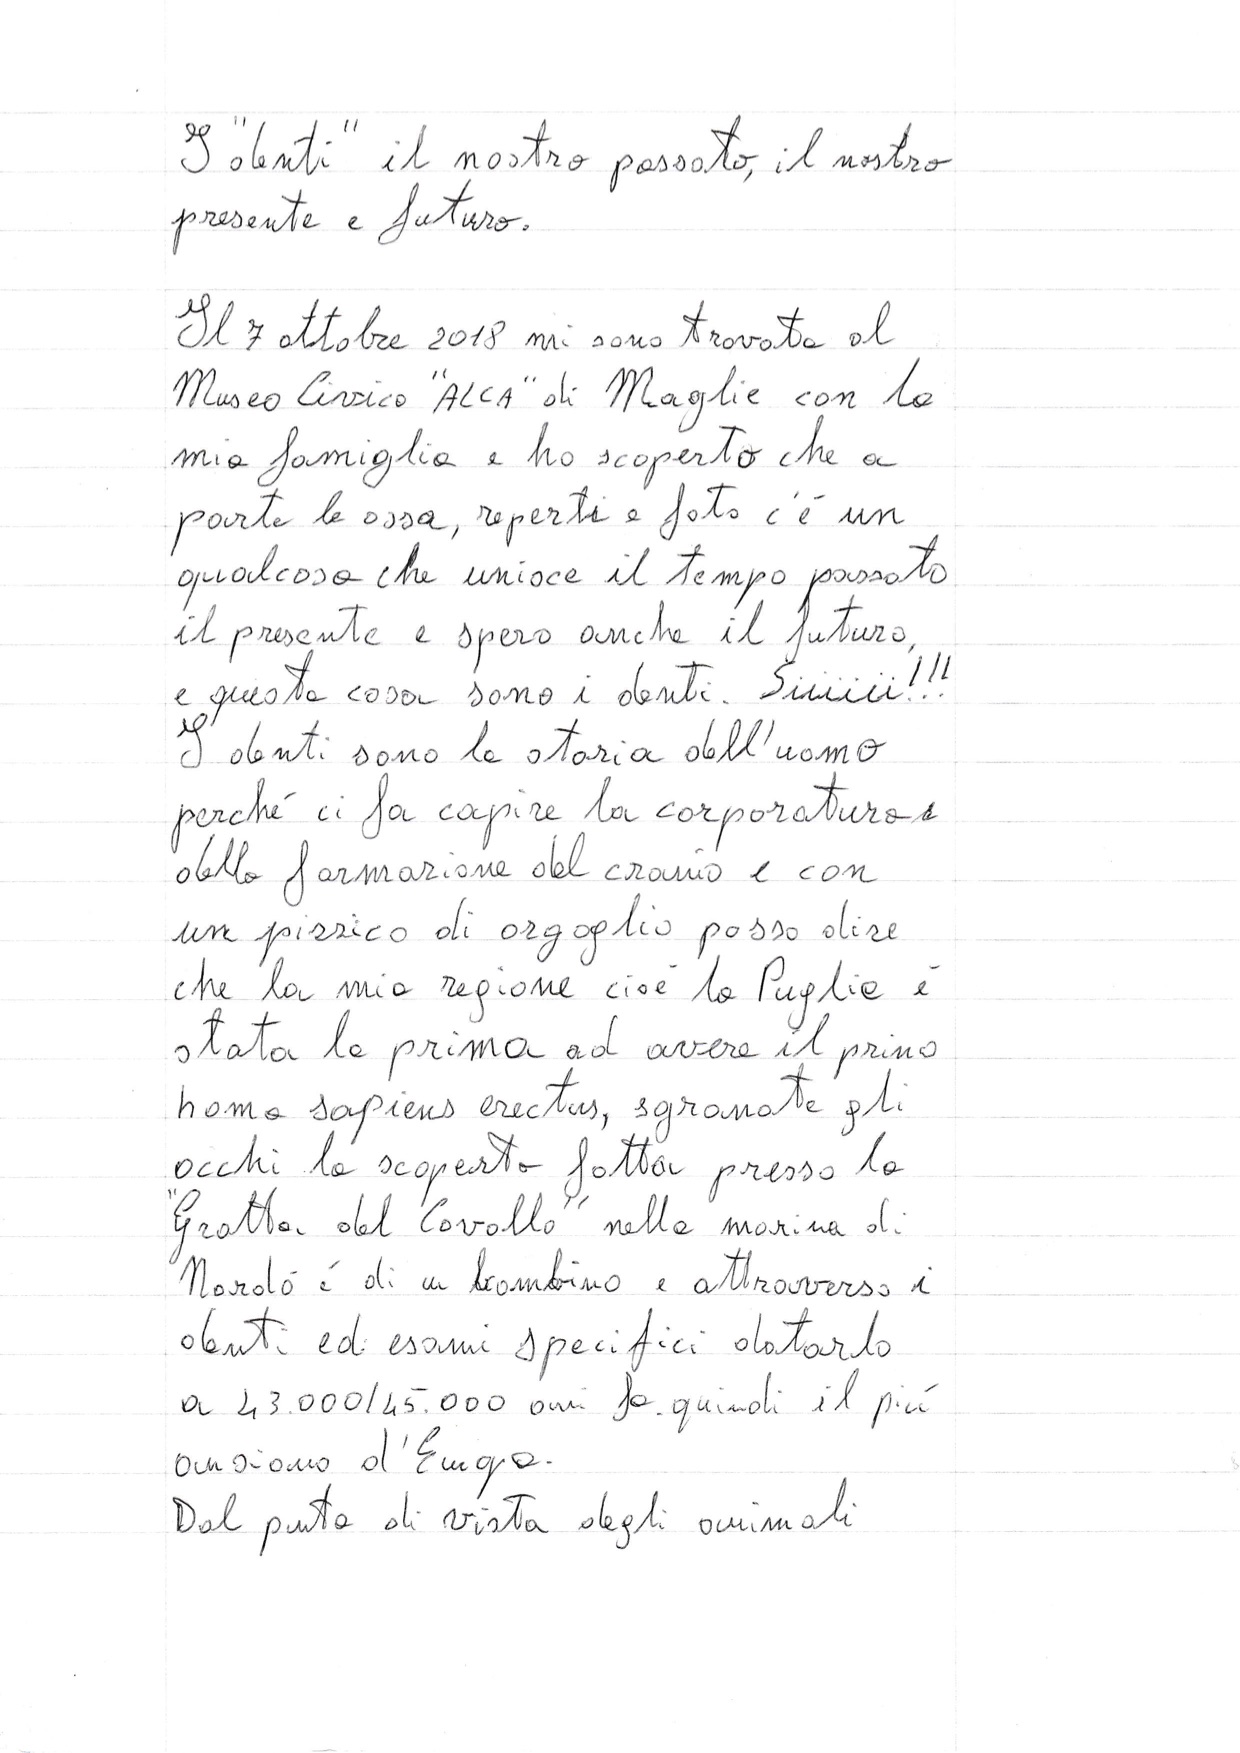 I "denti" il nostro passato, il nostro
presente e futuro.
Il 7 ottobre 2018 mi sono trovata al
Museo Civico "ALCA" di Maglie con la
mia famiglia e ho scoperto che a
parte le ossa, reperti e foto c'é un
qualcosa che unisce il tempo passato
il presente e spero anche il futuro,
e questa cosa sono i denti. Siiiiii!!!
I denti sono la storia dell'uomo
perché ci fa capire la corporatura e
della formazione del cranio e con
un pizzico di orgoglio posso dire
che la mia regione cioé la Puglia é
stata la prima ad avere il primo
homo sapiens erectus, sgranate gli
occhi la scoperta fatta presso la
"Grotta del Cavallo" nella marina di
Nardó é di un bambino e attraverso i
denti ed esami specifici datarlo
a 43.000/45.000 anni fa quindi il piú
anziano d'Europa.
Dal punto di vista degli animali